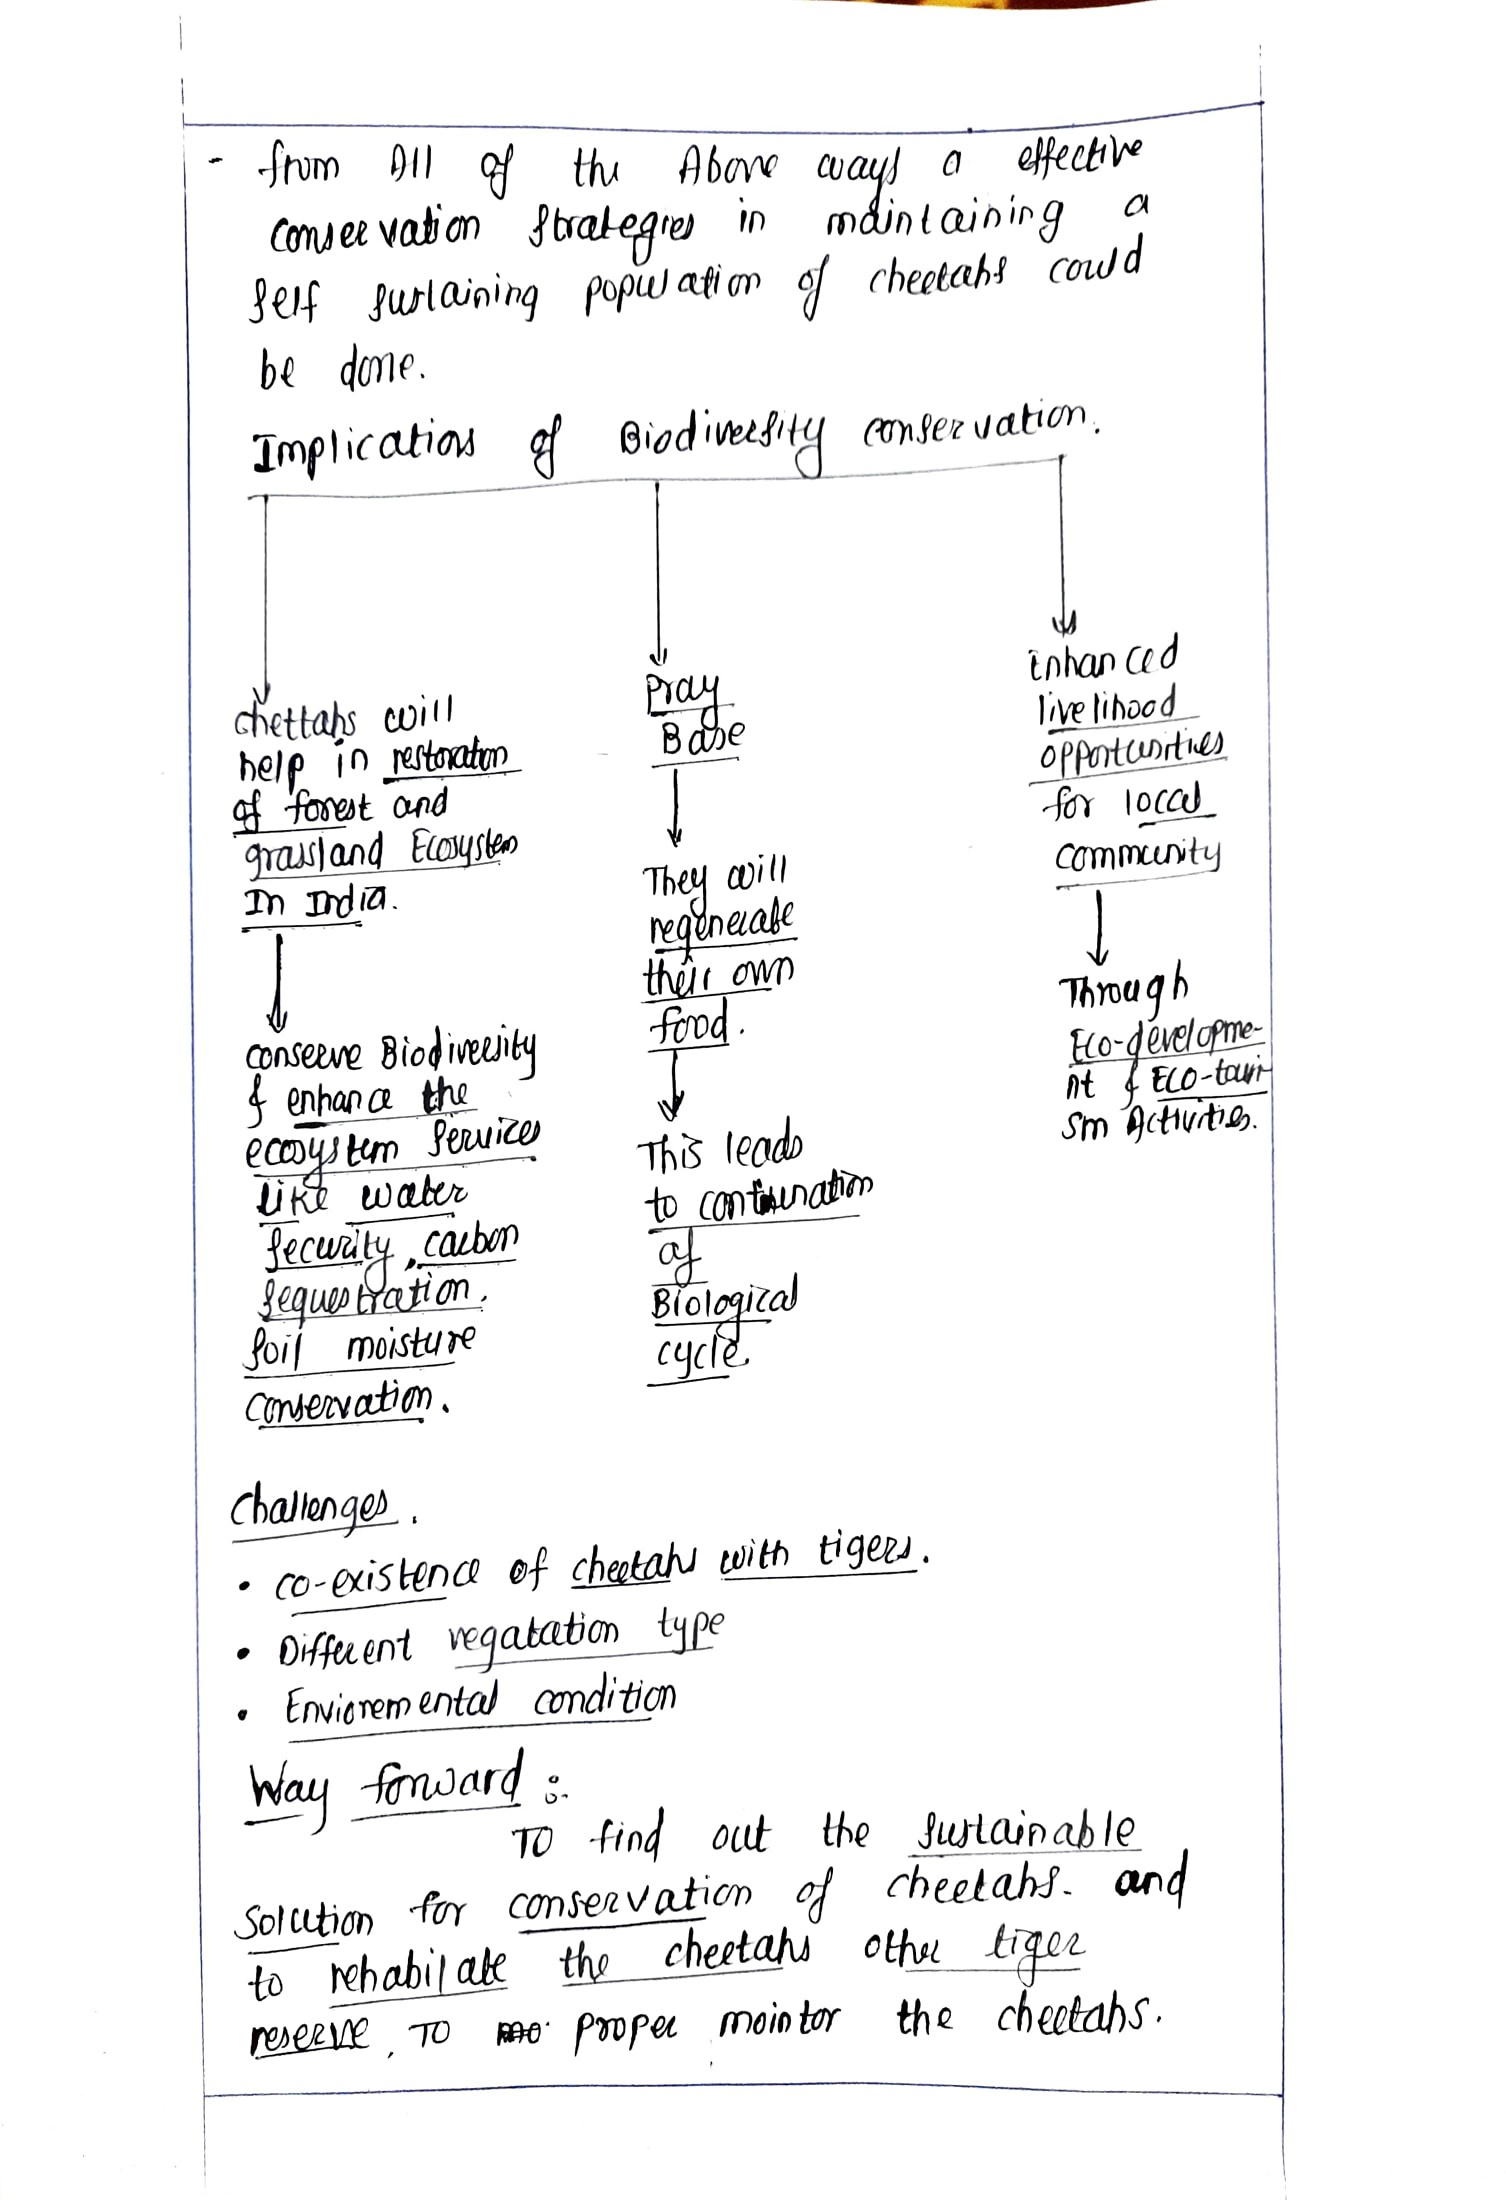 - from All of the Above ways a effective
conservation strategies in maintaining a
self sustaining population of cheetahs could
be done.
Implications of Biodiversity conservation.
chettahs will
help in restoration
of forest and
grassland Ecosystem
In India.
conserve Biodiversity
& enhance the
ecosystem services
like water
security, carbon
sequestration.
soil moisture
conservation.
Pray
Base
They will
regenerate
their own
food.
This leads
to continuation
of
Biological
cycle.
Enhanced
livelihood
opportunities
for local
community
Through
Eco-developme-
nt & ECO-touri-
sm Activities.
Challenges.
• co-existence of cheetahs with tigers.
• Different vegatation type
• Envioremental condition
Way forward :-
To find out the sustainable
solution for conservation of cheetahs. and
to rehabilate the cheetahs other tiger
reserve, To proper mointor the cheetahs.